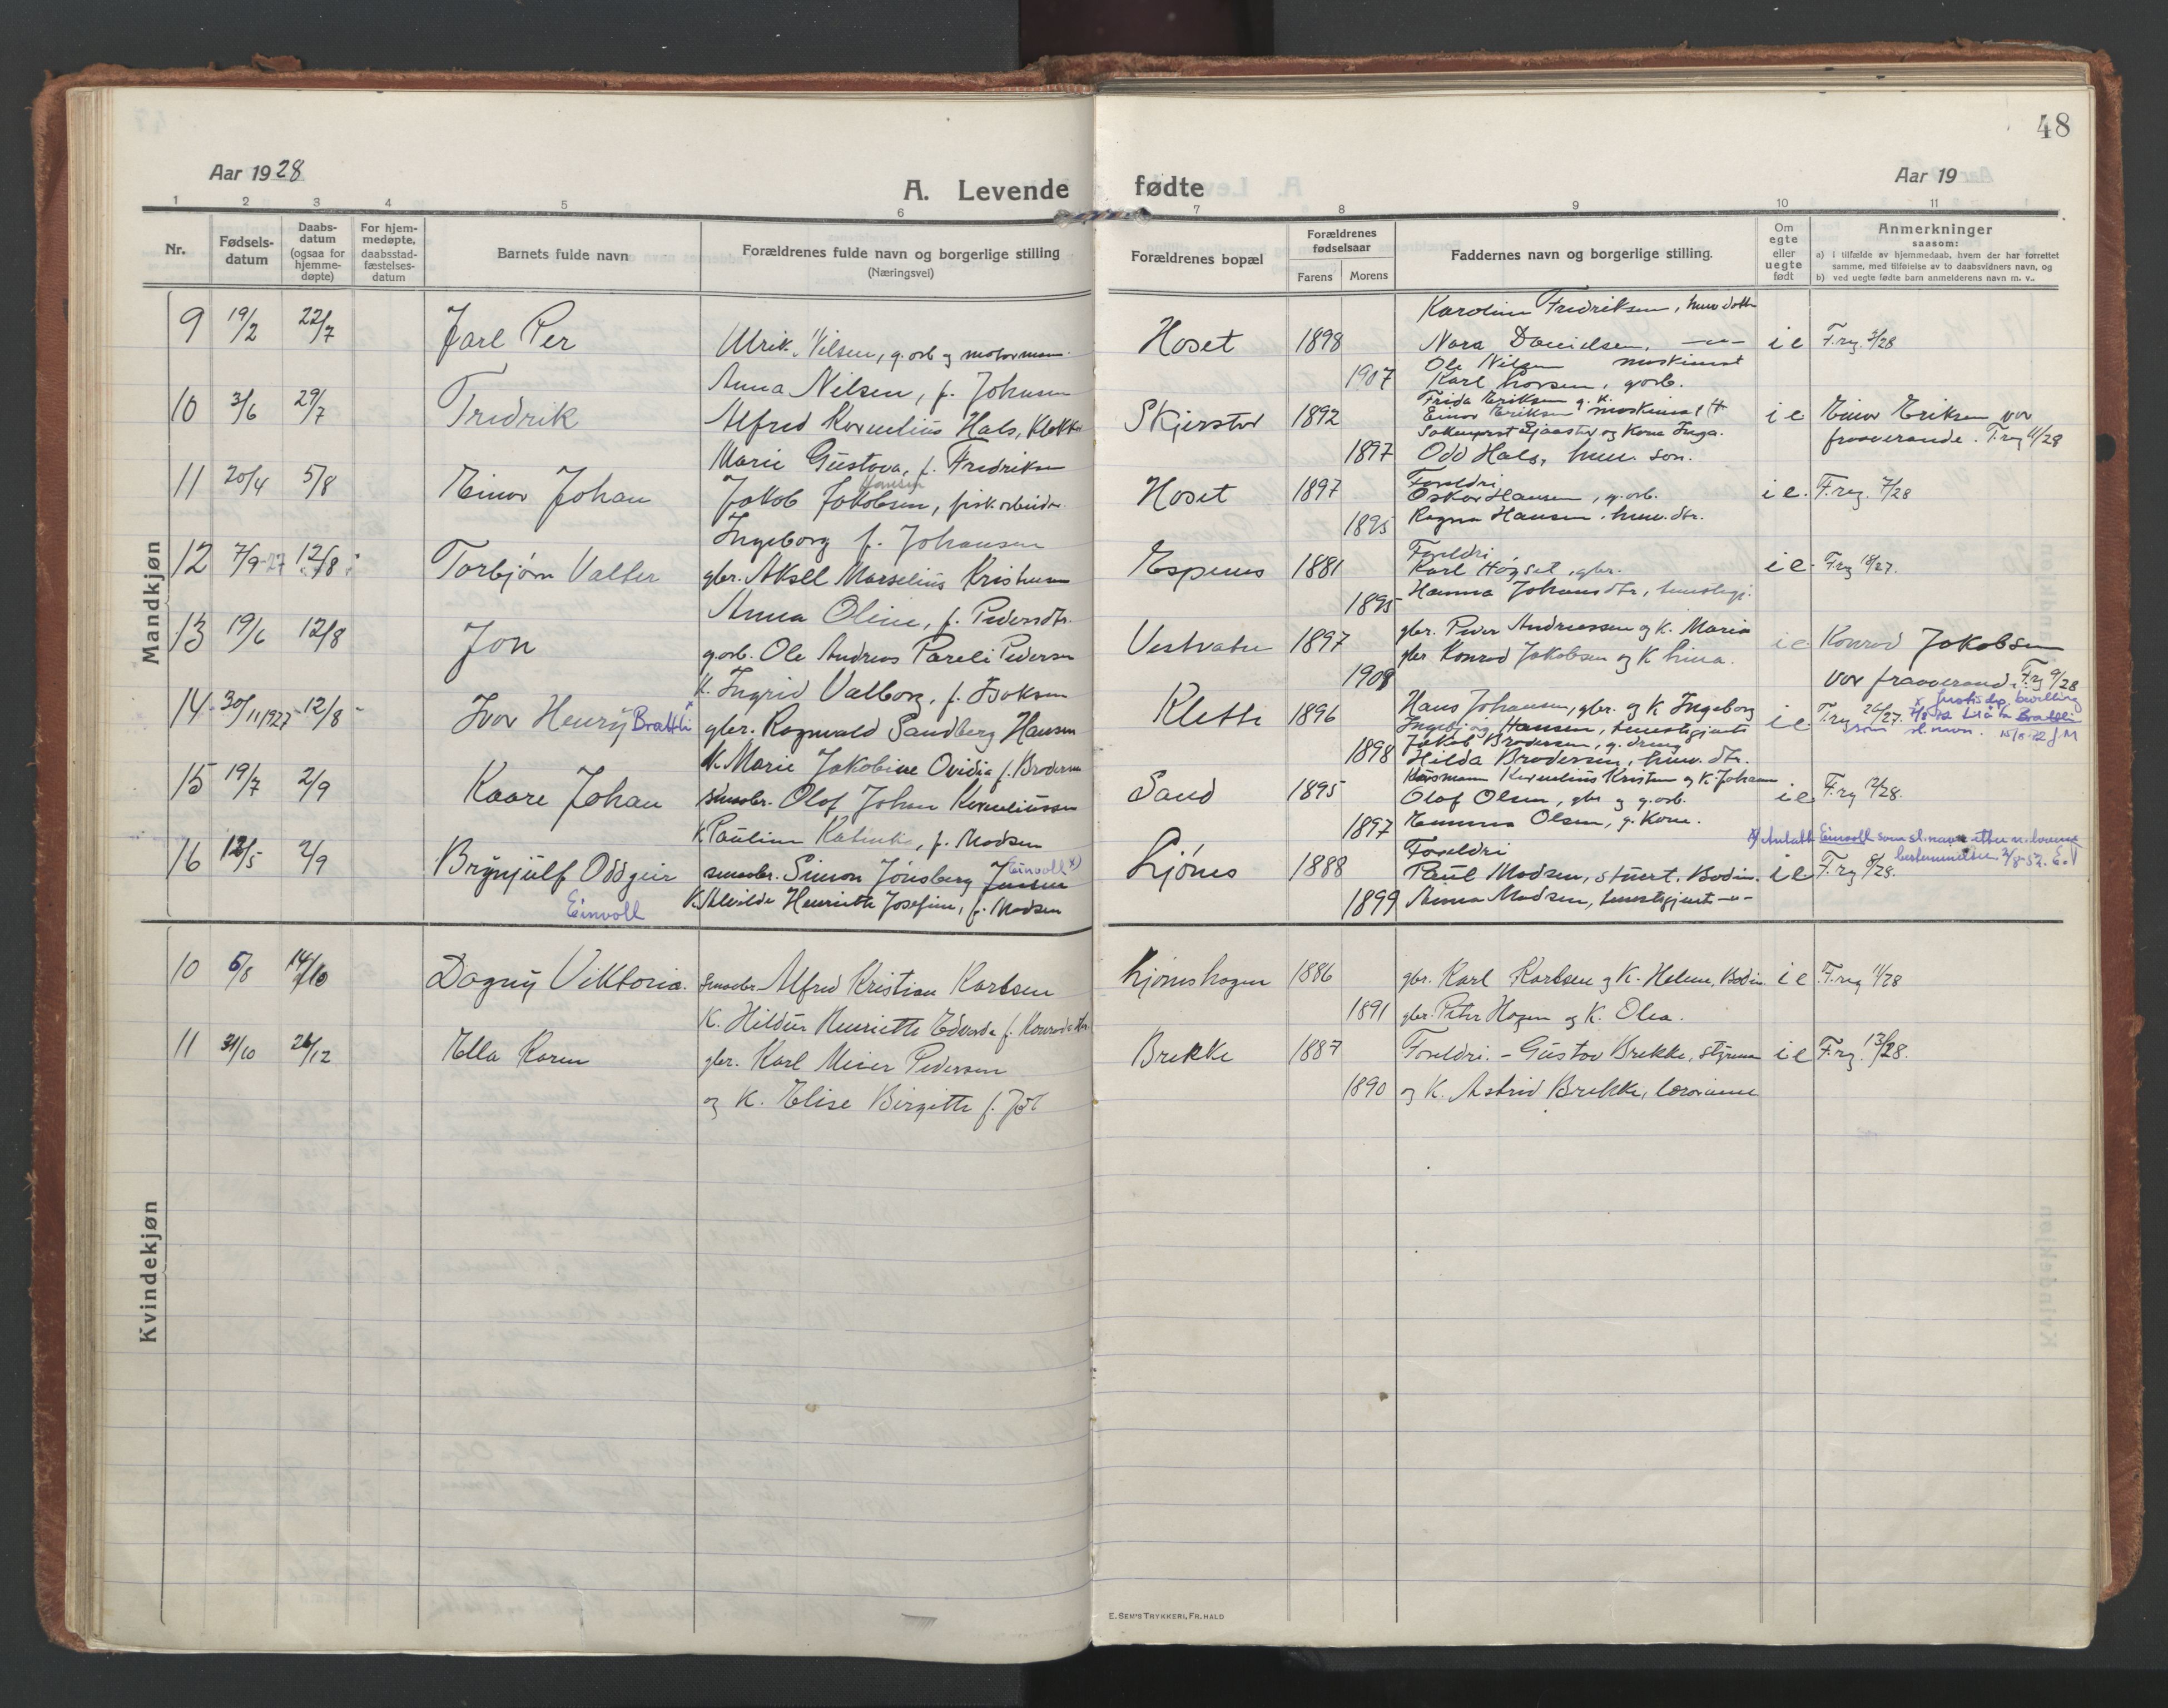 48
Aar 1928
A. Levende fødte
Aar 19
1 2 3 4 5 6 7 8 9 10 11
Nr.
Fødsels-
datum
Daabs-
datum
(ogsaa for
hjemme-
døpte)
For hjem-
medøpte,
daabsstad-
fæstelses-
datum
Barnets fulde navn
Forældrenes fulde navn og borgerlige stilling
(Næringsvei)
Forældrenes bopæl
Forældrenes
fødselsaar
Farens Morens
Faddernes navn og borgerlige stilling.
Om
egte
eller
uegte
født
Anmerkninger
saasom:
a) i tilfælde av hjemmedaab, hvem der har forrettet
samme, med tilføielse av to daabsvidners navn, og
b) ved uegte fødte barn anmelderens navn m. v..
Mandkjøn
Karoline Fredriksen, huusdottr
9 19/2 22/7 Jarl Per Ulrik Nilsen, g.arb og motormann Hoset 1898 Nora Danielsen, —"— i e F.reg. 3/28
Ole Nilsen maskinist
Anna Nilsen, f. Johnsen 1907 Karl Larsen, garb.
Frida Eriksen g. k.
10 3/6 29/7 Fredrik Alfred Kornelius Hals, Klokkar Skjerstad 1892 Einar Eriksen maskinist i e Einar Eriksen var
Sokneprest Sjaastad og Kona Inga. fraaverande. F.reg 11/28
Marie Gustava, f. Fredriksen 1897 Odd Hals, huus. son.
Jansen
Foreldri
11 20/4 5/8 Einar Johan Jakob Jakobsen, fisk.arbeidar Hoset 1897 Oskar Hansen, g.arb. i e. F.reg. 7/28
Ingeborg f. Johansen 1895 Ragna Hansen, huus. dtr.
Foreldri
12 7/9-27 12/8 Torbjørn Valter gbr. Aksel Marselius Kristensen Espenes 1881 Karl Høgset, gbr. i e. F.reg 18/27.
Anna Oline, f. Pedersdtr. 1895 Hanna Johansdtr, tenestegj.
gbr. Peder Andreassen og K. Maria
13 19/6 12/8 Jon g.arb. Ole Andreas Pareli Pedersen Vestvatn 1897 gbr Konrad Jakobsen og K Lina. i e Konrad Jakobsen
K. Ingrid Valborg, f. Isaksen 1908 var fraaverand. F.reg 9/28
Hans Johansen, gbr. og K Ingeborg
14 30/11 1927 12/8 Ivar Henry Brattli gbr. Ragnvald Sandberg Hansen Klette 1896 Ingebjørg Hansen, tenestgjente i e F.reg 26/27.
Justisdep. bevilling
Brattli
som sl. navn.
Jakob Brodersen, g. dreng
K. Marie Jakobine Ovidia f. Brodersen 1898 Hilda Brodersen, huus. dtr.
Kornelius Kristensen og K. Johanna
15 19/7 2/9 Kaare Johan smaabr. Olaf Johan Korneliussen Sand 1895 Olaf Olsen, gbr og g.arb. i e F.reg 12/28.
K. Pauline, f. Madsen 1897 Emma Olsen, g. Kone.
x) Antatt Einvoll som sl.navn etter n.lovens
bestemmelse 2/8-52. E.V
Foreldri
16 12/5 2/9 Brynjulf Oddgeir smaabr. Simon Jønsberg Jensen Einvoll x) Ljønes 1888 Paul Madsen, stuert, Bodin. i e F.reg 8/28.
Einvoll
K. Alvilde Henriette Josefine, f. Madsen 1899 Anna Madsen, tenestgjente —"—
Kvindekjøn
10 5/8 14/10 Dagny Viktoria. smaabr. Alfred Kristian Karlsen Ljøneshagen 1886 gbr. Karl Karlsen og K. Helene, Bodin i e F.reg 11/28
K. Hildur Henriette Edvarda f. Konradsdtr. 1891 gbr. Peter Hagen og K. Olea.
11 31/10 26/12 Ella Karen gbr. Karl Meier Pedersen Brekke 1887 Foreldri. - Gustav Brekke, styrmann i e F.reg. 13/28.
og K. Elise Birgitte f. 1890 og K. Astrid Brekke, lærarinne
E. SEM'S TRYKKERI, FR. HALD